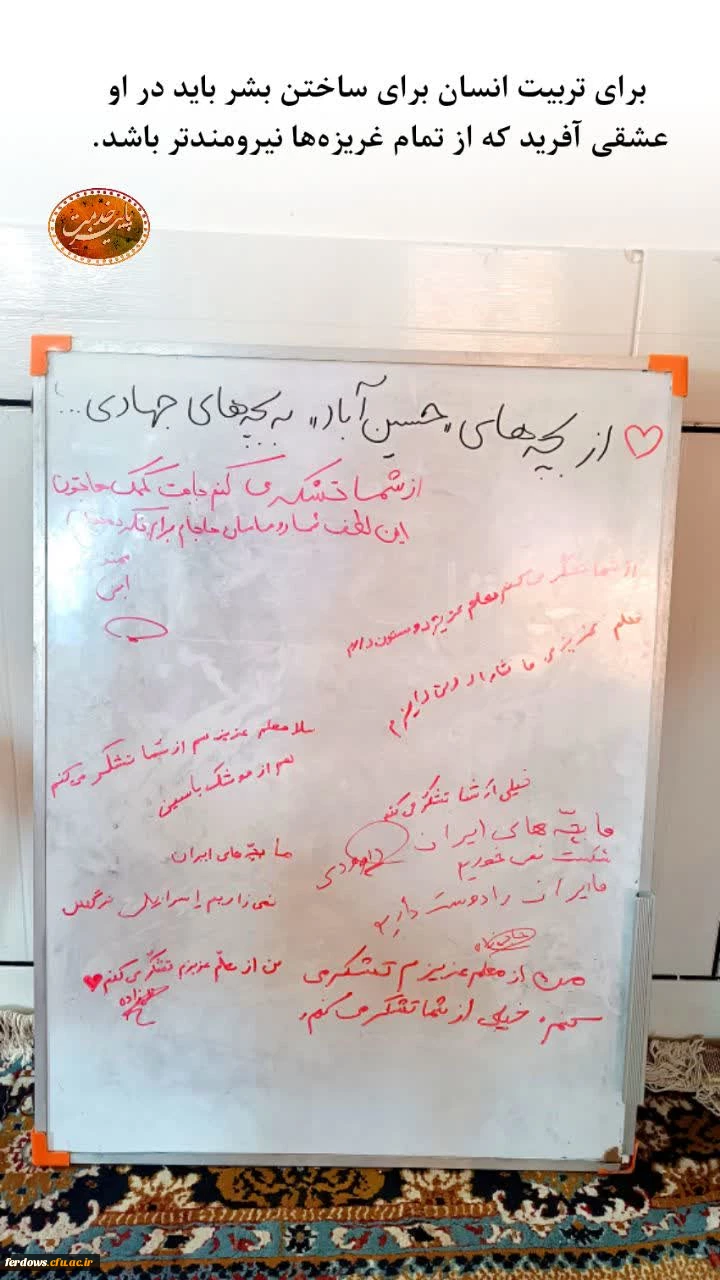 برای تربیت انسان برای ساختن بشر باید در او
عشقی آفرید که از تمام غریزه‌ها نیرومندتر باشد.
پاییز خدمت
از بچه‌های «حسین آباد» به بچه‌های جهادی...
از شما تشکر می کنم بابت کمک هاتون
این لطف شما و
از شما تشکر می کنم معلم عزیز دوستون دارم
معلم عزیزی ما شما را دوس داریم
سلام معلم عزیزم از شما تشکر می کنم
هم از موشک یاسین
خیلی از شما تشکر می کنم
ما بچّه های ایران
شکست نمی خوریم
ما ایران را دوست داریم
ما بچّه های ایران
نمی زاریم اسراییل نرگس
من از معلم عزیزم تشکر می
کنم. خیلی از شما تشکر می کنم.
من از معلّم عزیزم تشکّر می کنم
ferdows.cfu.ac.ir